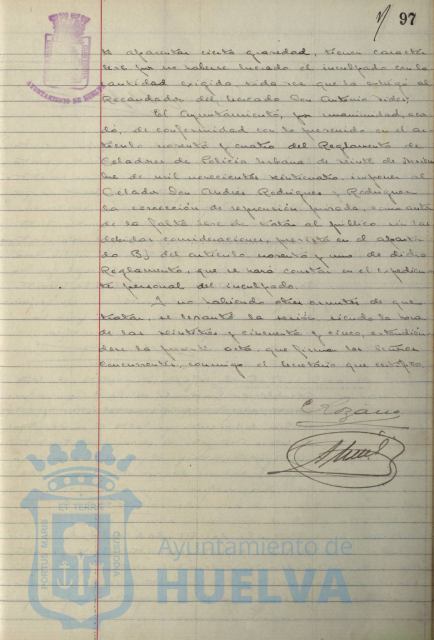 97
AYUNTAMIENTO DE HUELVA
te aparentan cierta gravedad, tienen carácter
leve por no haberse lucrado el inculpado con la
cantidad exigida, toda vez que la exigió al
Recaudador del Mercado Don Antonio
El Ayuntamiento, por unanimidad, acor-
dó, de conformidad con lo prevenido en el ar-
tículo noventa y cuatro del Reglamento de
Celadores de Policía Urbana de veinte de
de mil novecientos veinticuatro, imponer al
Celador Don Andrés Rodríguez y Rodríguez
la corrección de reprensión privada, como autor
de la falta leve de tratar al público sin las
debidas consideraciones, prevista en el aparta-
do B) del artículo noventa y uno de dicho
Reglamento, que se hará constar en el expedien-
te personal del inculpado.
Y no habiendo otros asuntos de que
tratar, se levantó la sesión, siendo la hora
de las veintitrés y cincuenta y cinco, extendién-
dose la presente acta, que firman los Señores
concurrentes, conmigo el Secretario que certifico.
C Lozano
ET TERRE
PORTUS MARIS
CUSTODIA
Ayuntamiento de
HUELVA